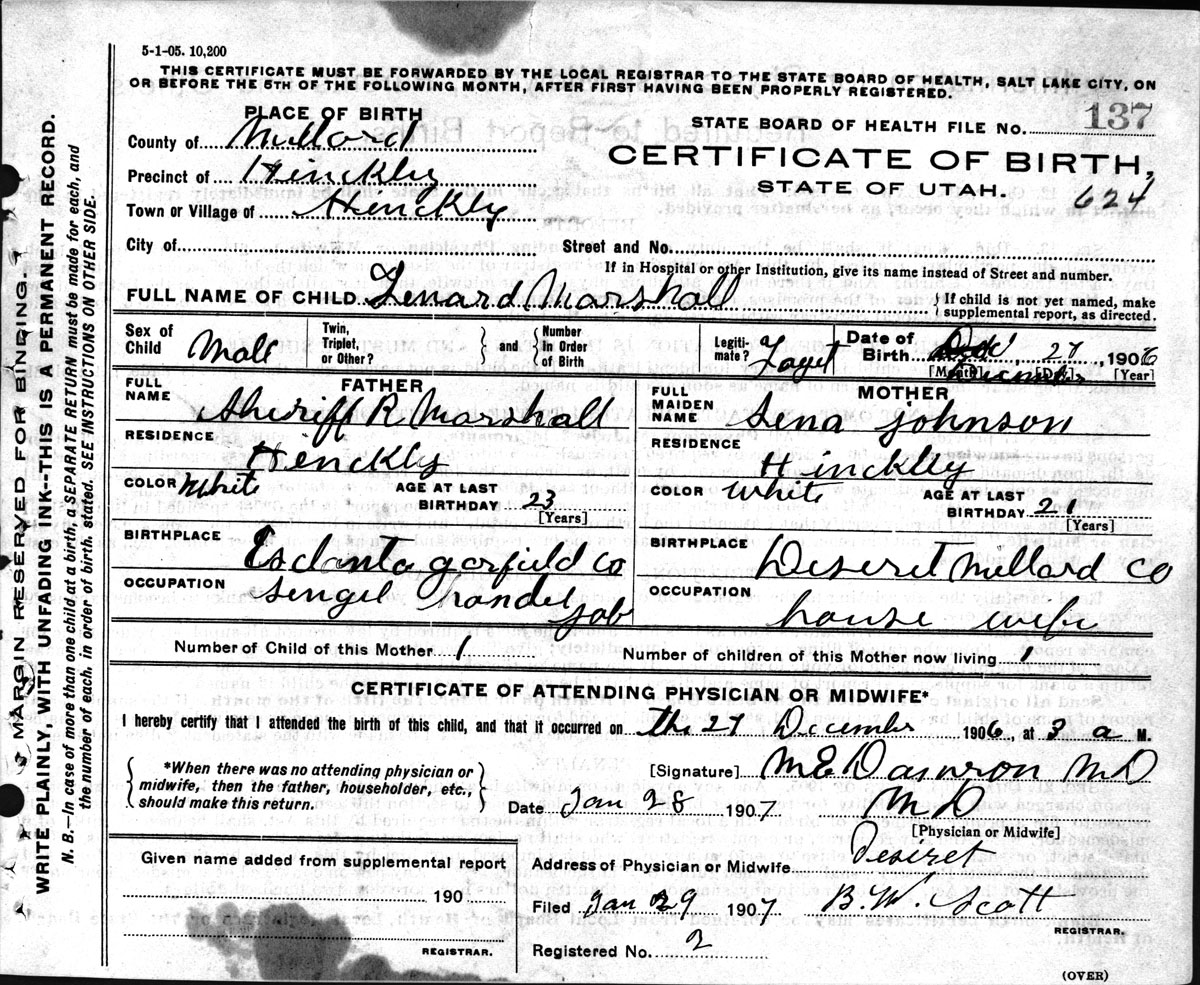 5-1-05. 10,200
THIS CERTIFICATE MUST BE FORWARDED BY THE LOCAL REGISTRAR TO THE STATE BOARD OF HEALTH, SALT LAKE CITY, ON
OR BEFORE THE 5TH OF THE FOLLOWING MONTH, AFTER FIRST HAVING BEEN PROPERLY REGISTERED.
PLACE OF BIRTH
STATE BOARD OF HEALTH FILE NO. 137
County of Millard
CERTIFICATE OF BIRTH,
Precinct of Hinckly
STATE OF UTAH. 624
Town or Village of Hinckly
City of Street and No.
If in Hospital or other Institution, give its name instead of Street and number.
FULL NAME OF CHILD Lenard Marshall { If child is not yet named, make supplemental report, as directed.
Sex of Child Mall Twin, Triplet, or Other? } and { Number In Order of Birth Legiti- mate? Date of Birth 27, 1906
[Month] [Day] [Year]
FULL NAME FATHER Sheriff R Marshall
FULL MAIDEN NAME MOTHER Lena Johnson
RESIDENCE Henckly
RESIDENCE Hinckley
COLOR White AGE AT LAST BIRTHDAY 23 [Years]
COLOR White AGE AT LAST BIRTHDAY 21 [Years]
BIRTHPLACE garfield co
BIRTHPLACE Deseret Millard co
OCCUPATION Sengel handel job
OCCUPATION house wife
Number of Child of this Mother 1 Number of children of this Mother now living 1
CERTIFICATE OF ATTENDING PHYSICIAN OR MIDWIFE*
I hereby certify that I attended the birth of this child, and that it occurred on the 27 December 1906, at 3 a M.
{ *When there was no attending physician or midwife, then the father, householder, etc., should make this return. }
[Signature] M E Damron MD
Date Jan 28 1907 MD
[Physician or Midwife]
Given name added from supplemental report
190
REGISTRAR.
Address of Physician or Midwife Desiret
Filed Jan 29 1907 B.W. Scott
REGISTRAR.
Registered No. 2
(OVER)
MARGIN RESERVED FOR BINDING.
WRITE PLAINLY, WITH UNFADING INK--THIS IS A PERMANENT RECORD.
N. B.—In case of more than one child at a birth, a SEPARATE RETURN must be made for each, and
the number of each, in order of birth, stated. SEE INSTRUCTIONS ON OTHER SIDE.